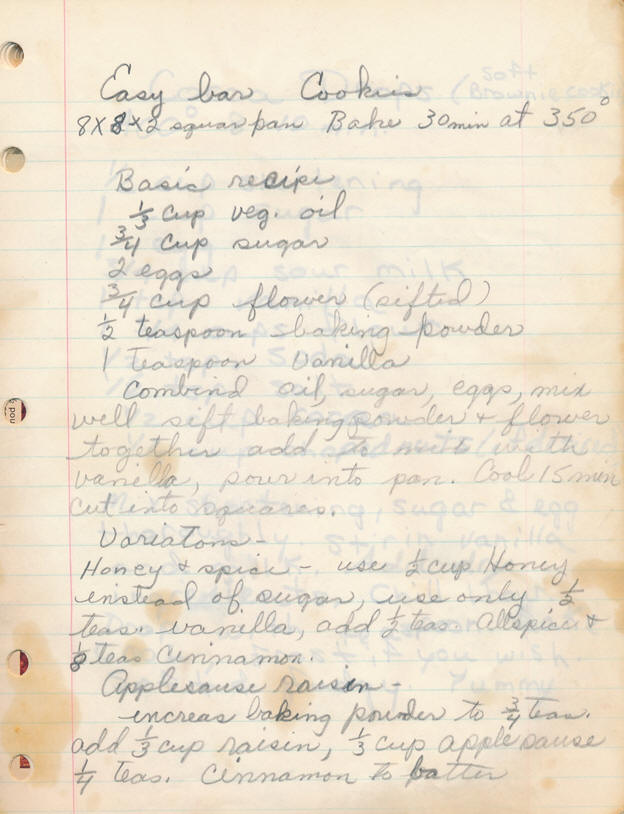 Easy bar Cookies
8x8x2 squar pan Bake 30 min at 350°
Basic recipe
1/3 cup veg. oil
3/4 cup sugar
2 eggs
3/4 cup flower (sifted)
1/2 teaspoon baking powder
1 teaspoon vanilla
Combind oil, sugar, eggs, mix
well sift baking powder + flower
together add to mix with
vanilla, pour into pan. Cool 15 min
cut into squares.
Variatons -
Honey & spice - use 1/2 cup Honey
instead of sugar, use only 1/2
teas. vanilla, add 1/2 teas. Allspice &
1/8 teas Cinnamon.
Applesause raisin -
increas baking powder to 3/4 teas.
add 1/3 cup raisin, 1/3 cup apple sause
1/4 teas. Cinnamon to batter